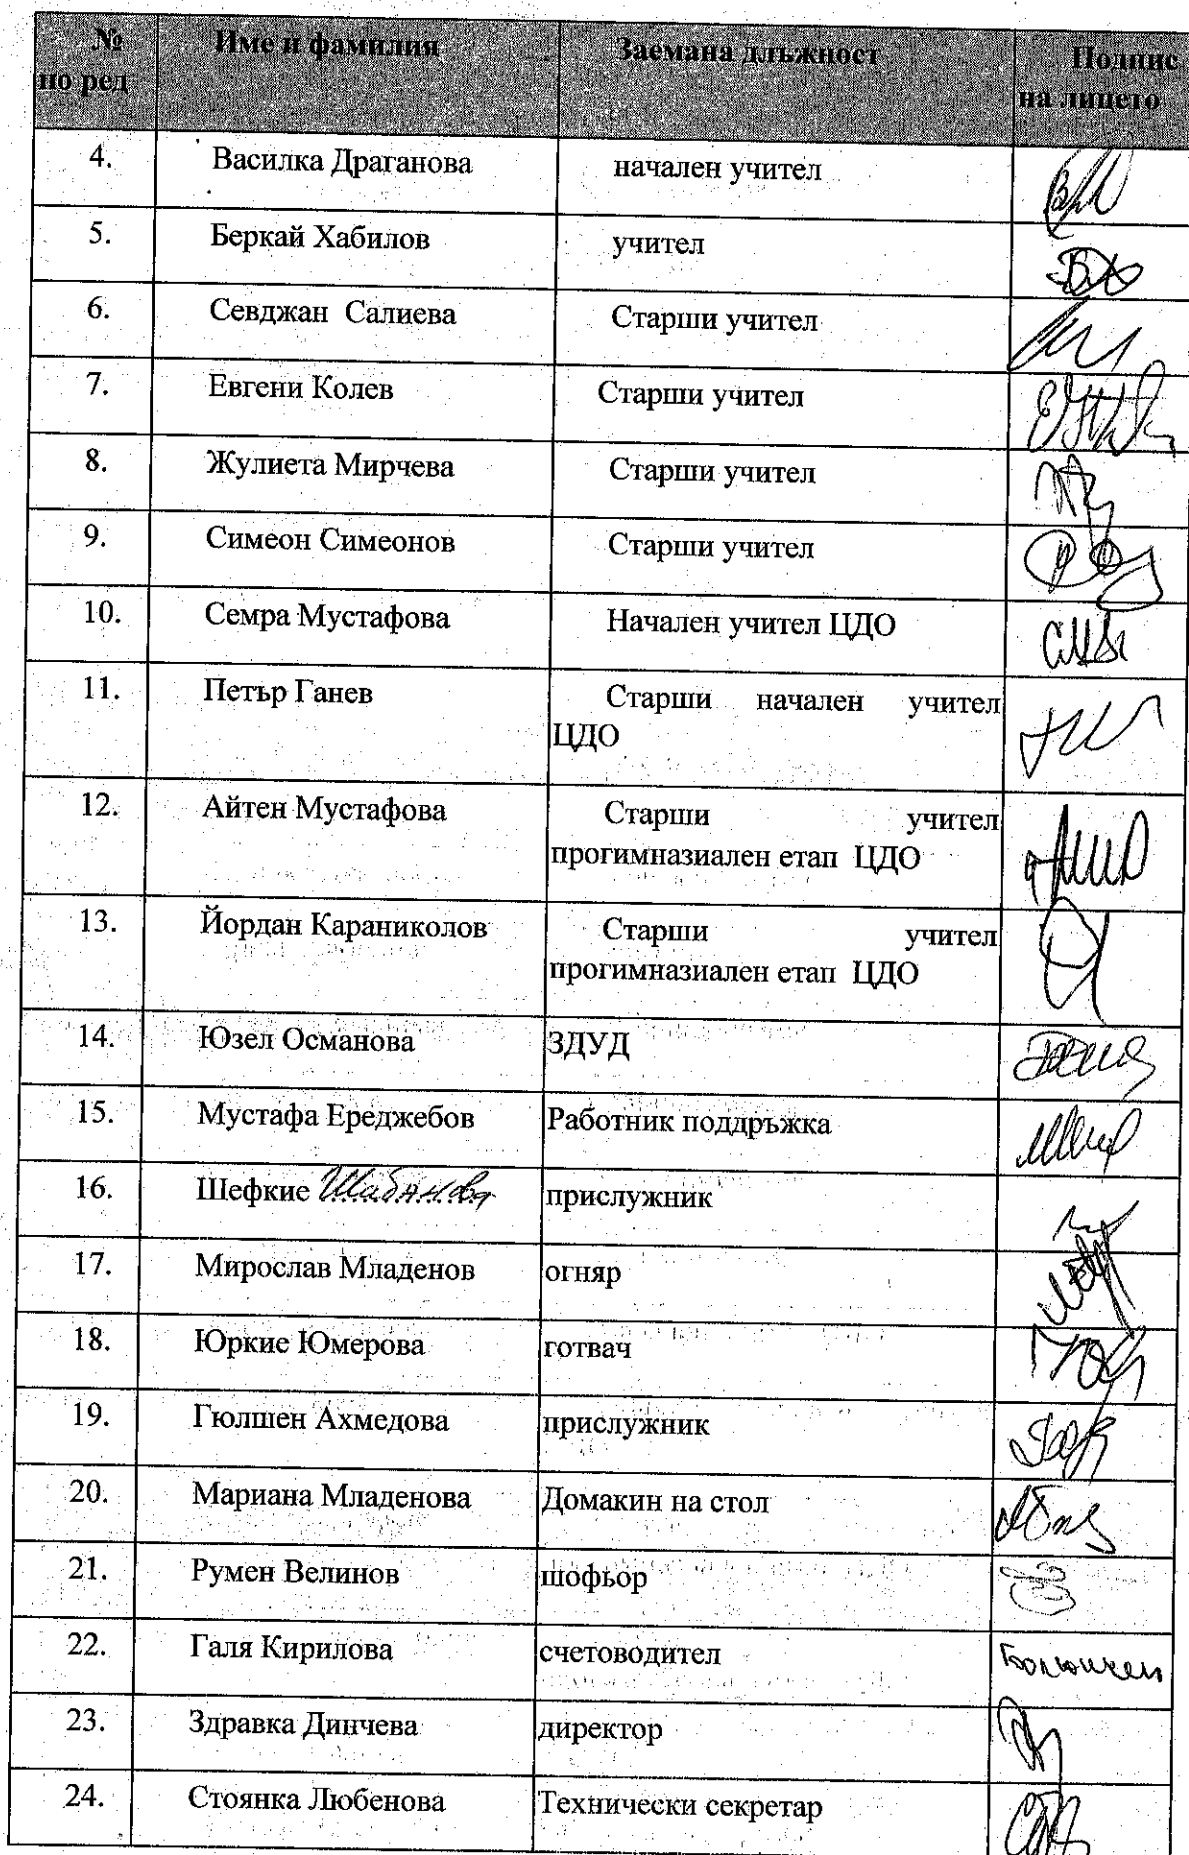 № по ред Име и фамилия Заемана длъжност Подпис на лицето
4. Василка Драганова начален учител
5. Беркай Хабилов учител
6. Севджан Салиева Старши учител
7. Евгени Колев Старши учител
8. Жулиета Мирчева Старши учител
9. Симеон Симеонов Старши учител
10. Семра Мустафова Начален учител ЦДО
11. Петър Ганев Старши начален учител
ЦДО
12. Айтен Мустафова Старши учител
прогимназиален етап ЦДО
13. Йордан Караниколов Старши учител
прогимназиален етап ЦДО
14. Юзел Османова ЗДУД
15. Мустафа Ереджебов Работник поддръжка
16. Шефкие Шабанова прислужник
17. Мирослав Младенов огняр
18. Юркие Юмерова готвач
19. Гюлшен Ахмедова прислужник
20. Мариана Младенова Домакин на стол
21. Румен Велинов шофьор
22. Галя Кирилова счетоводител
23. Здравка Динчева директор
24. Стоянка Любенова Технически секретар